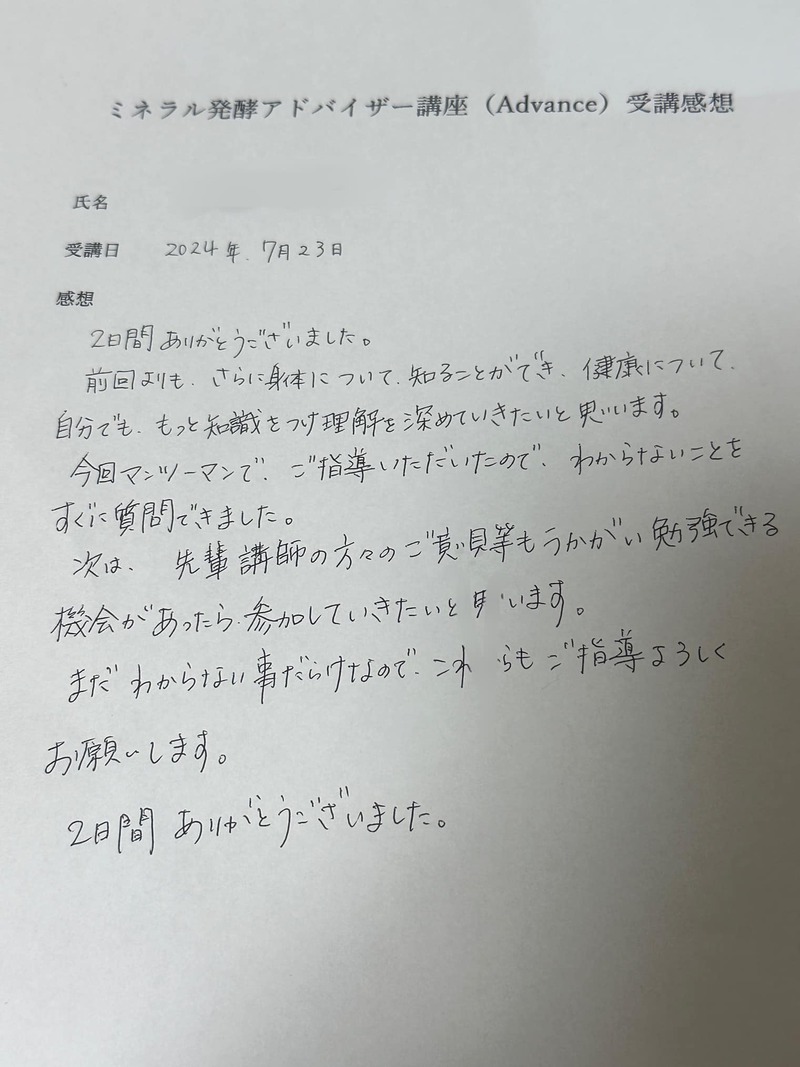 ミネラル発酵アドバイザー講座（Advance）受講感想
氏名
受講日 2024年、7月23日
感想
2日間ありがとうございました。
前回よりも、さらに身体について、知ることができ、健康について、
自分でも、もっと知識をつけ理解を深めていきたいと思います。
今回マンツーマンで、ご指導いただいたので、わからないことを
すぐに質問できました。
次は、先輩講師の方々のご意見等もうかがい勉強できる
機会があったら、参加していきたいと思います。
まだわからない事だらけなので、これ らもご指導よろしく
お願いします。
2日間ありがとうございました。